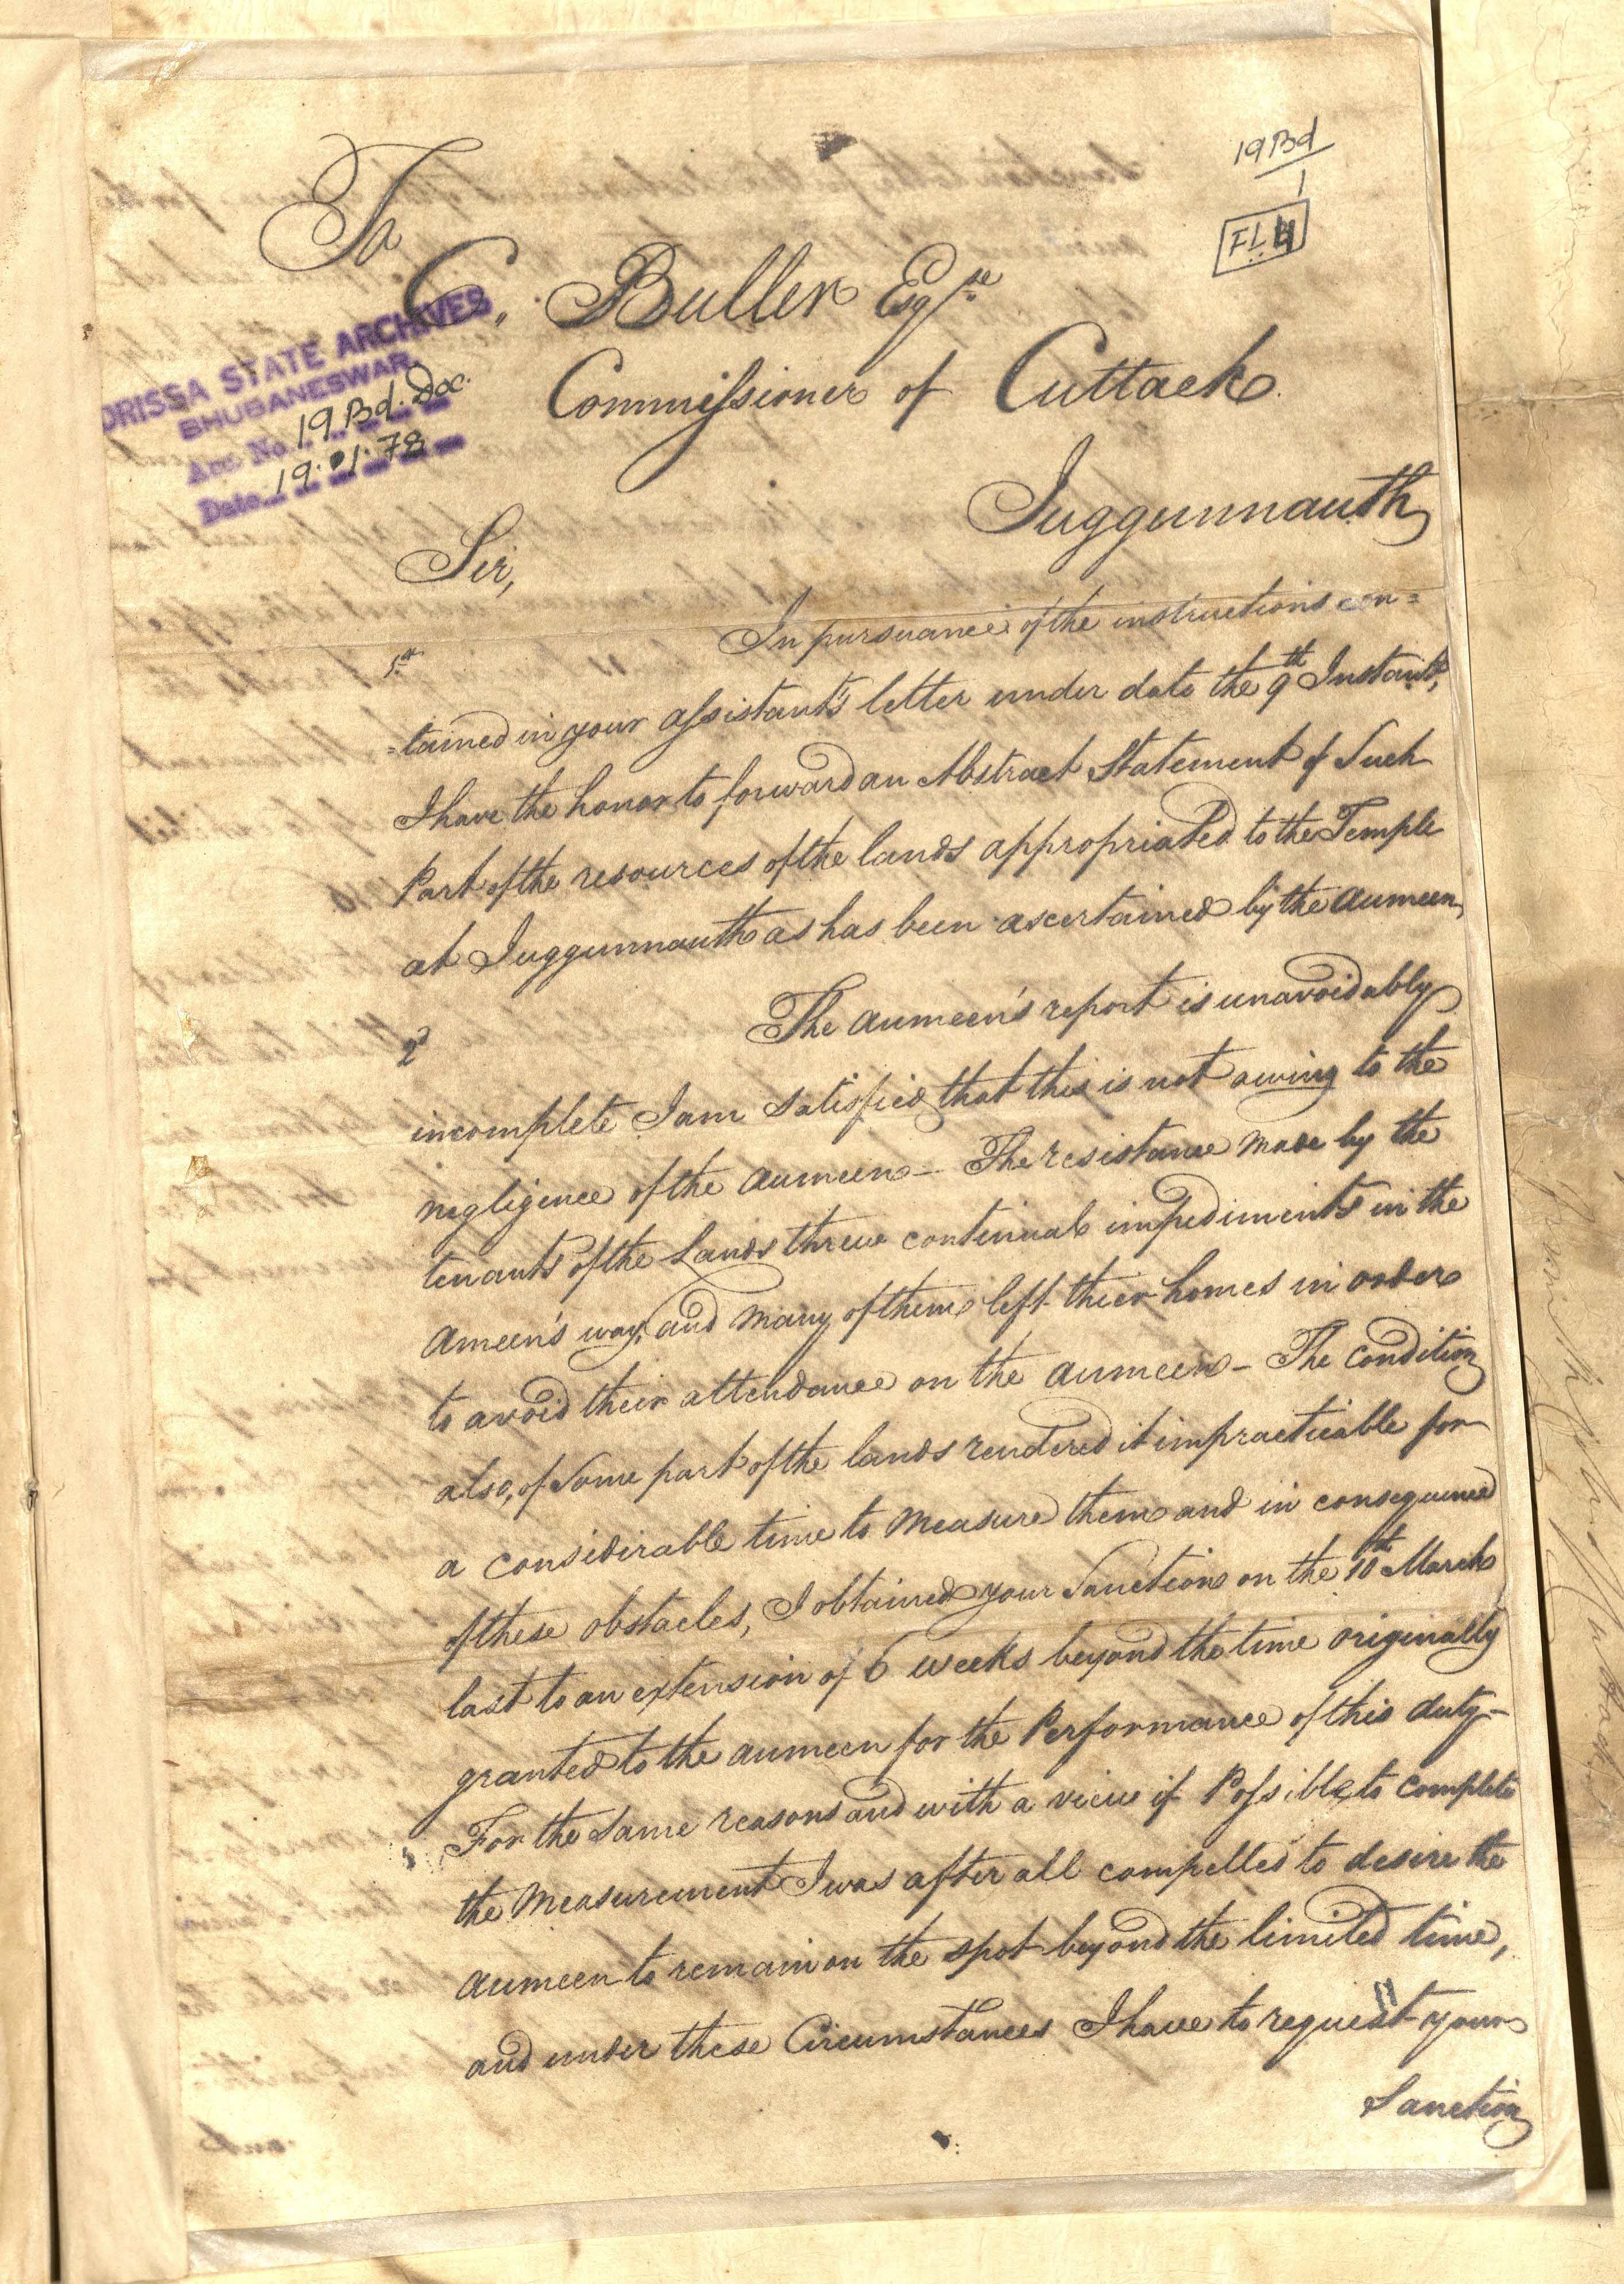 19 Bd
1
FL 4
To
C. Buller Esqre
Commissioner of Cuttack
ORISSA STATE ARCHIVES
BHUBANESWAR
Acc No. 19 Bd. Doc.
Date 19.1.78
Juggunnauth
Sir,
1st In pursuance of the instructions con=
=tained in your assistant's letter under date the 9th Instant,
I have the honor to forward an Abstract Statement of Such
Part of the resources of the lands appropriated to the Temple
at Juggunnauth as has been ascertained by the aumeen
2d The aumeen's report is unavoidably
incomplete I am satisfied that this is not owing to the
negligence of the aumeen – The resistance made by the
tenants of the Lands threw continual impediments in the
ameen's way, and many of them left their homes in order
to avoid their attendance on the aumeen – The condition
also, of Some part of the lands rendered it impracticable for
a considirable time to measure them and in consequence
of these obstacles, I obtained your Sanction on the 10th March
last to an extension of 6 weeks beyond the time originally
granted to the aumeen for the Performance of this duty –
For the Same reasons and with a view if Possible, to complete
the measurement I was after all compelled to desire the
aumeen to remain on the spot beyond the limited time,
and under these Circumstances I have to request your
Sanction